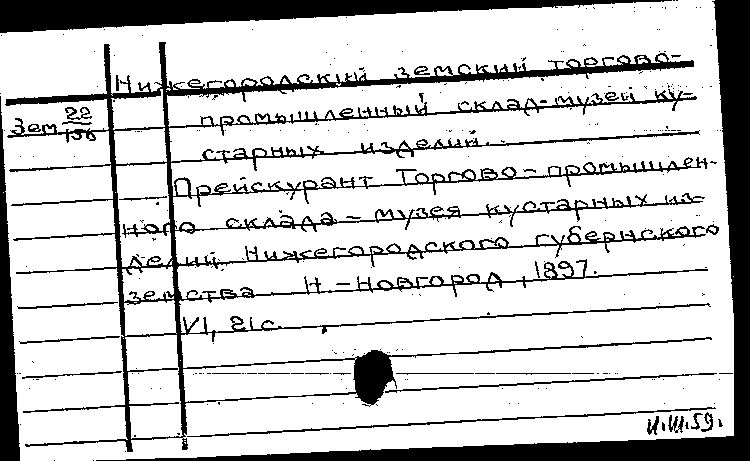 Нижегородский земский торгово-
Зем 22/156
промышленный склад-музей ку-
старных изделий.
Прейскурант Торгово-промышлен-
ного склада-музея кустарных из-
делий Нижегородского губернского
земства Н.-Новгород, 1897.
VI, 21 с.
11.III.59.